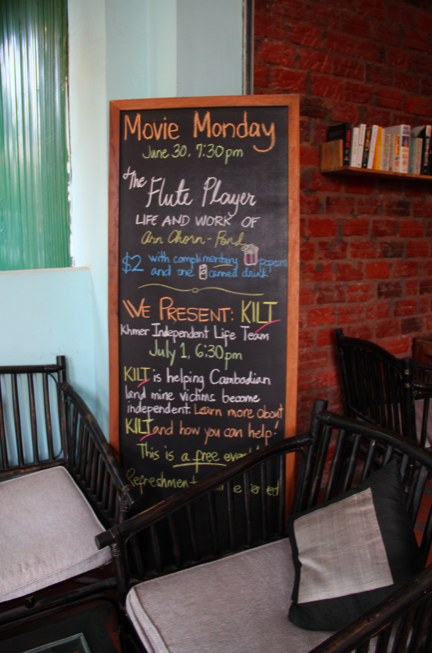 Movie Monday
June 30, 7:30pm
The
Flute Player
LIFE AND WORK OF
Arn Chorn-Pond
$2 with complimentary popcorn
and one canned drink
WE PRESENT: KILT
Khmer Independent Life Team
July 1, 6:30pm
KILT is helping Cambodian
land mine victims become
independent. Learn more about
KILT and how you can help!
This is a free
Refreshment